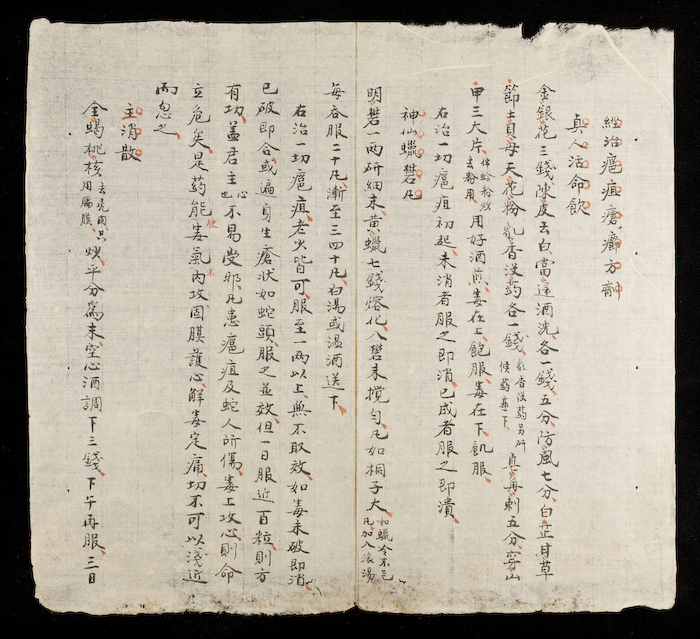 經治癰疽瘡癤方劑
真人活命飲
金銀花三錢陳皮去白當歸酒洗各一錢五分防風七分白芷甘草
節士貝母天花粉乳香没药各一錢乳香没药另研候药熟下真再刺五分穿山
甲三大片伴蛤粉炒去粉用用好酒煎毒在上飽服毒在下飢服
右治一切癰疽初起未消者服之即消已成者服之即潰
神仙蠟礬凡
明礬一兩研細末黃蠟七錢熔化入礬末攪勻凡如桐子大如蠟冷不已凡加入滚湯
每吞服二十凡漸至三四十凡白湯或温酒送下
右治一切癰疽老火皆可服至一兩以上無不取效如毒未破即消
已破即合或遍身生瘡狀如蛇頭服之並效但一日服近百粒則方
有功盖君主心也不易受邪凡患癰疽及蛇人所傷毒上攻心則命
立危矣是药能使毒氣不内攻固膜護心解毒定痛切不可以淺近
而忽之
主消散
全蝎桃核去壳肉只用膈膜炒平分為末空心酒調下三錢下午再服三日